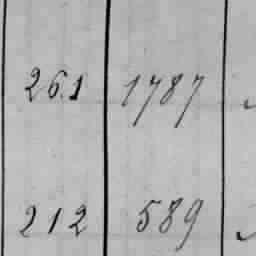 261 1787
212 589